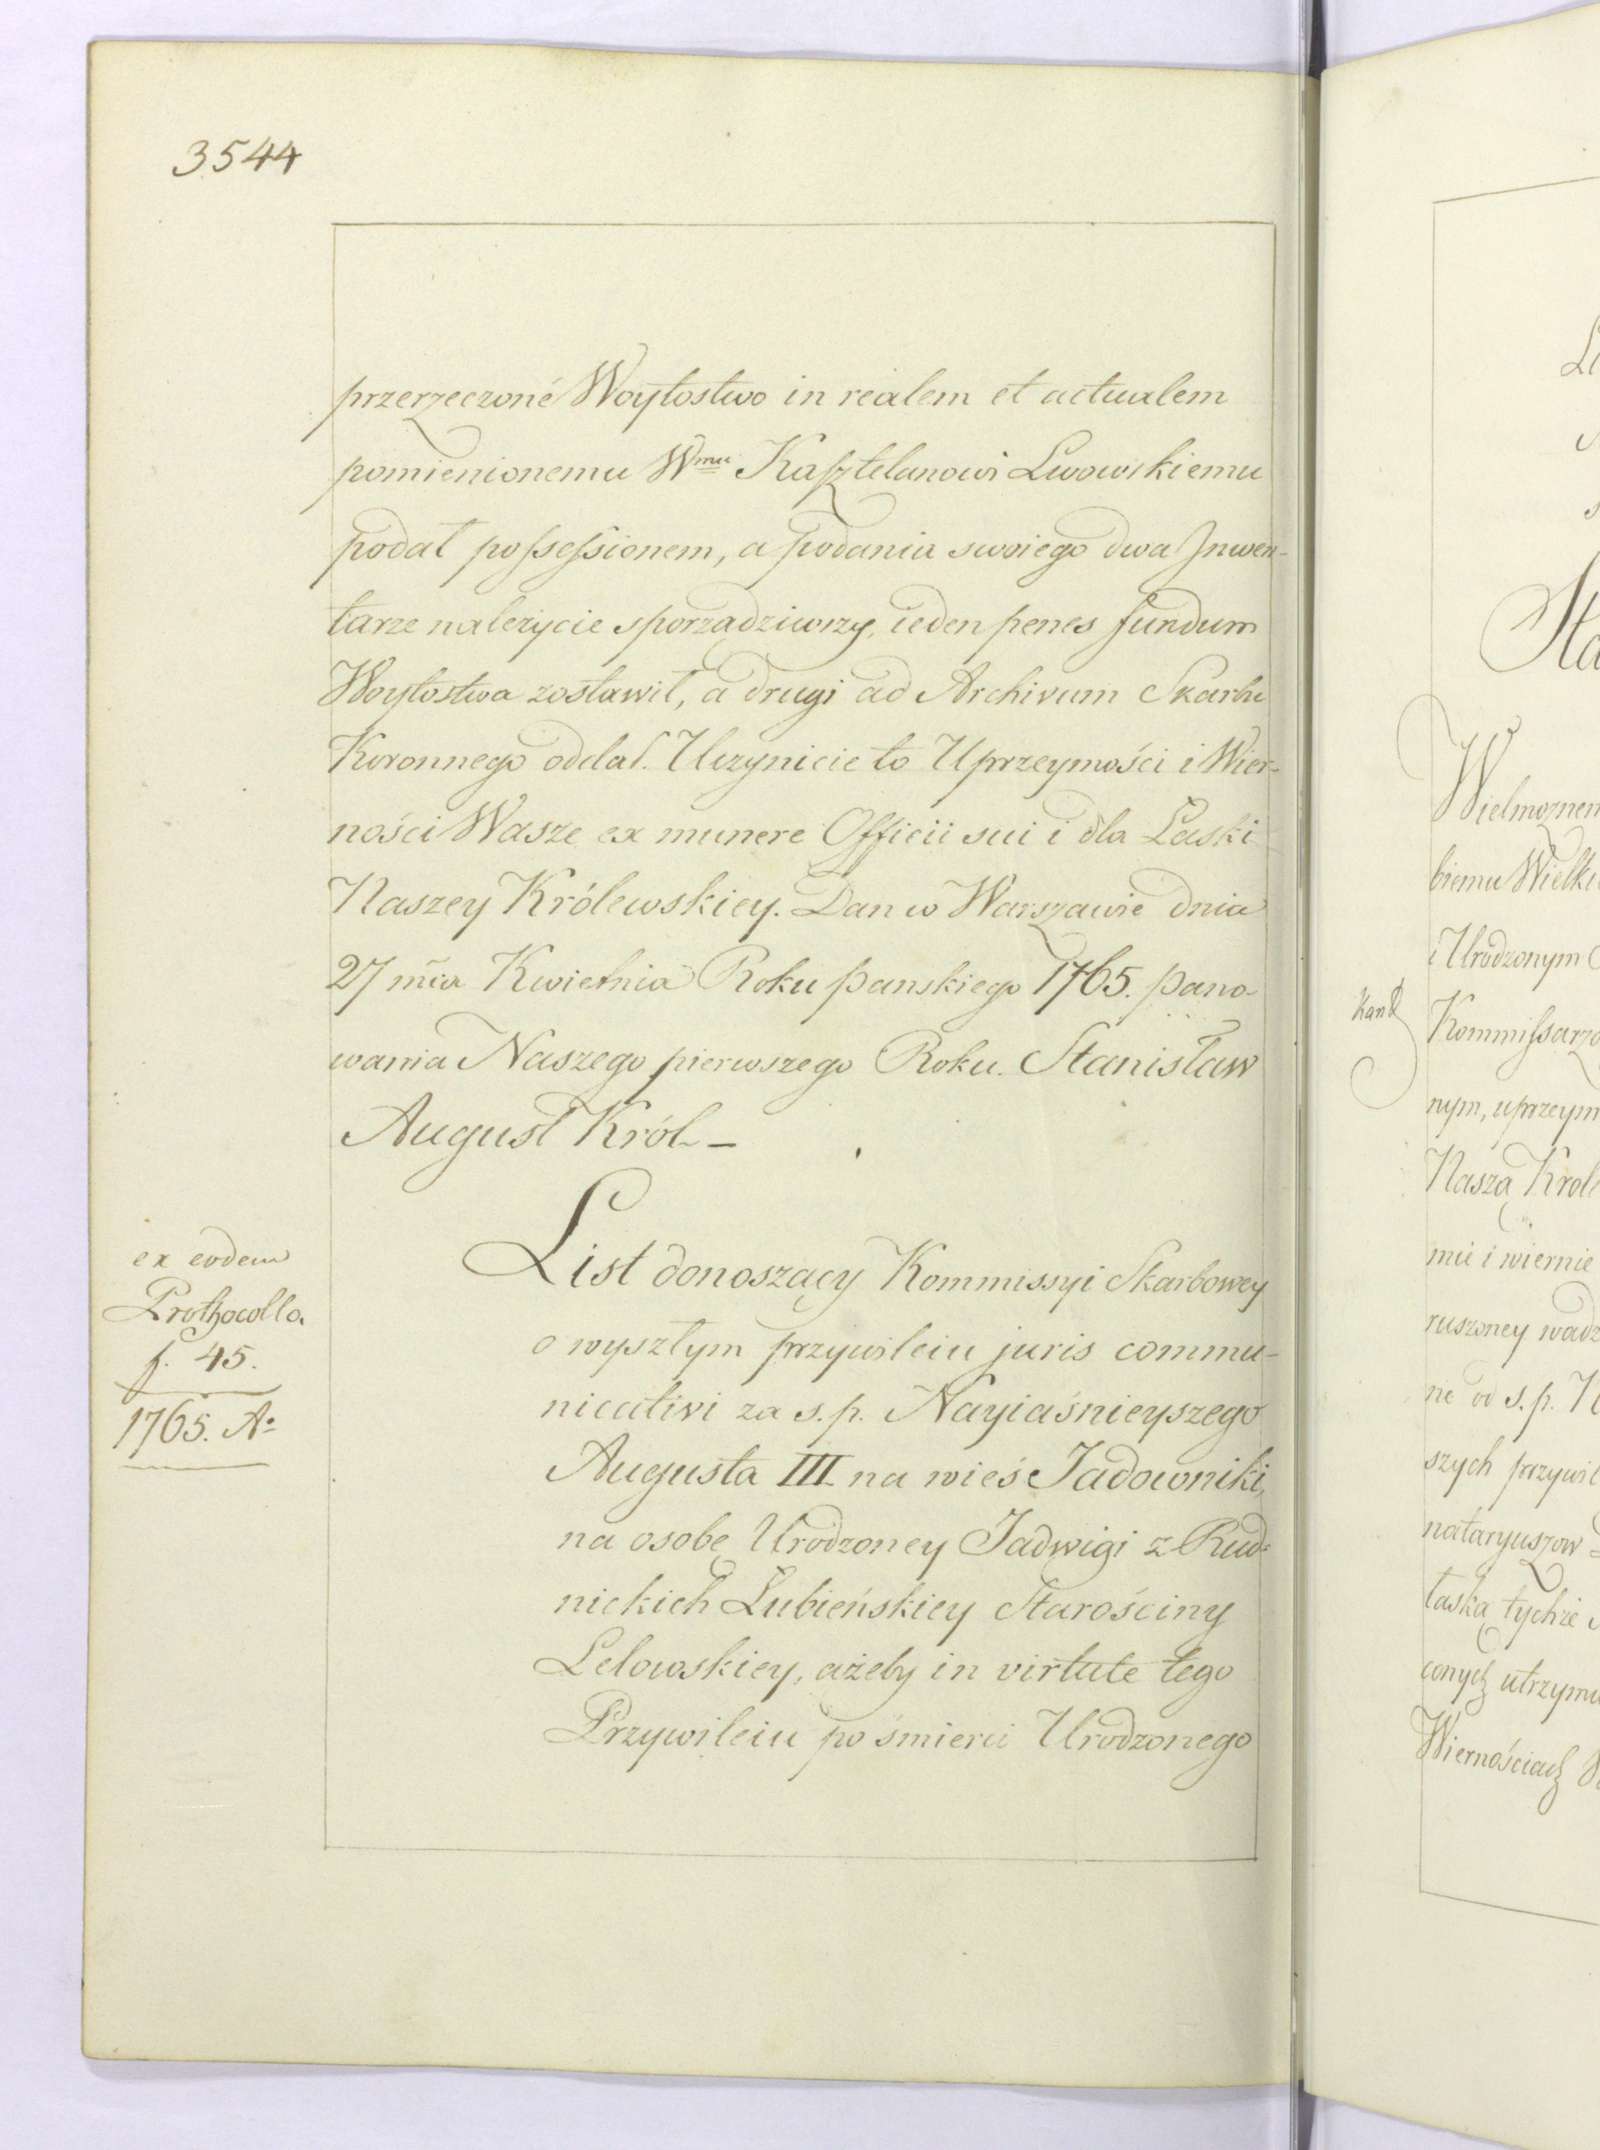 3544
przerzeczoné Woytostwo in realem et actualem
pomienionemu Wmu Kasztelanowi Lwowskiemu
podał possessionem, a podania swoiego dwa Inwen-
tarze należycie sporządziwrzy, ieden penes fundum
Woytostwa zostawił, a drugi ad Archivum Skarbu
Koronnego oddał. Uczynicie to Uprzeymości i Wier-
ności Wasze ex munere Officii sui i dla Łaski
Naszey Królewskiey. Dan w Warszawie dnia
27 mca Kwietnia Roku panskiego 1765. pano-
wania Naszego pierwszego Roku. Stanisław
August Król_
ex eodem
Prothocollo.
f. 45.
1765. Ao
List donoszący Kommissyi Skarbowey
o wyszłym przywileiu juris commu-
nicativi za s.p. Nayiaśnieyszego
Augusta III na wieś Jadowniki,
na osobę Urodzoney Jadwigi z Rud-
nickich Łubieńskiey Starościny
Lelowskiey, ażeby in virtute tego
Przywileiu po śmierci Urodzonego
Sta
Wielmożnem
biemu Wielki
i Urodzonym
Kommissarzo
nym, uprzeym
Naszą Krol
mie i wiernie
ruszoney wadz
nie od s.p. N
szych przywil
nataryuszow
łaską tychże
conych utrzymu
Wiernościach